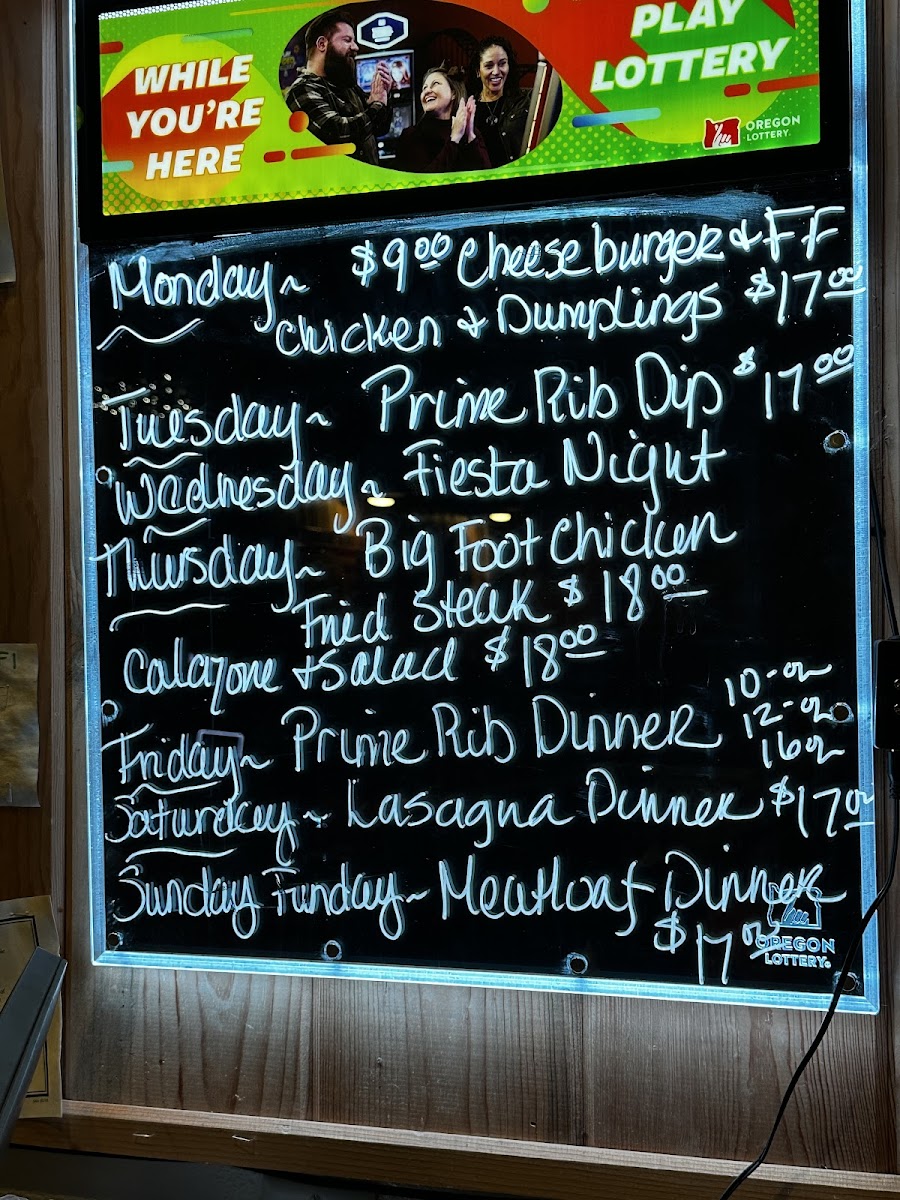 WHILE
YOU'RE
HERE
PLAY
LOTTERY
OREGON
LOTTERY.
Monday~ $9.00 Cheeseburger & FF
Chicken & Dumplings $17.00
Tuesday~ Prime Rib Dip $17.00
Wednesday~ Fiesta Night
Thursday~ Big Foot Chicken
Fried Steak $18.00
Calazone & Salad $18.00
Friday~ Prime Rib Dinner 10-oz
12-oz
16oz
Saturday~ Lasagna Dinner $17.00
Sunday Funday~ Meatloaf Dinner
$17.00
OREGON
LOTTERY.